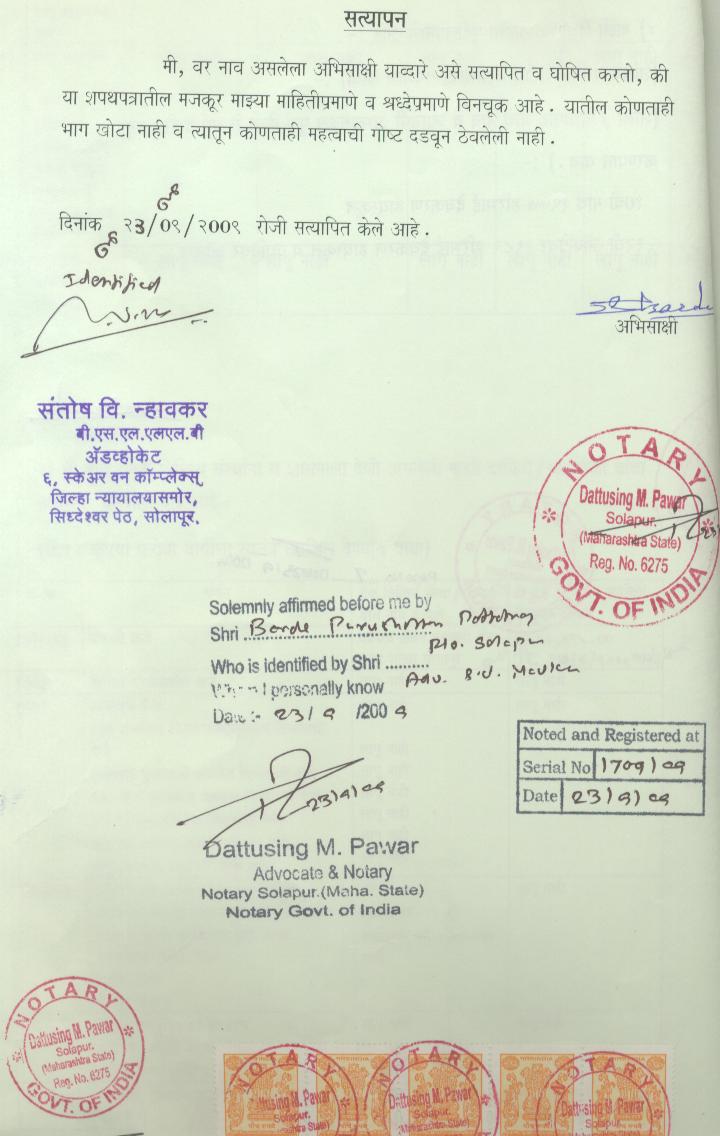 सत्यापन
मी, वर नाव असलेला अभिसाक्षी याव्दारे असे सत्यापित व घोषित करतो, की
या शपथपत्रातील मजकूर माझ्या माहितीप्रमाणे व श्रध्देप्रमाणे विनचूक आहे . यातील कोणताही
भाग खोटा नाही व त्यातून कोणताही महत्वाची गोष्ट दडवून ठेवलेली नाही .
दिनांक २३/०९/२००९ रोजी सत्यापित केले आहे .
Identified
अभिसाक्षी
संतोष वि. न्हावकर
बी.एस.एल.एलएल.बी
ॲडव्होकेट
६, स्केअर वन कॉम्प्लेक्स्,
जिल्हा न्यायालयासमोर,
सिध्देश्वर पेठ, सोलापूर.
NOTARY
Dattusing M. Pawar
Solapur.
(Maharashtra State)
Reg. No. 6275
GOVT. OF INDIA
Solemnly affirmed before me by
Shri Barde
R/o. Solapur
Who is identified by Shri ..........
Adv.
Whom I personally know
Date :- 23/9/2009
Noted and Registered at
Serial No 1709/09
Date 23/9/09
23/9/09
Dattusing M. Pawar
Advocate & Notary
Notary Solapur.(Maha. State)
Notary Govt. of India
NOTARY
Dattusing M. Pawar
Solapur.
(Maharashtra State)
Reg. No. 6275
GOVT. OF INDIA
NOTARY
Dattusing M. Pawar
Solapur.
NOTARY
Dattusing M. Pawar
Solapur.
NOTARY
Dattusing M. Pawar
Solapur.